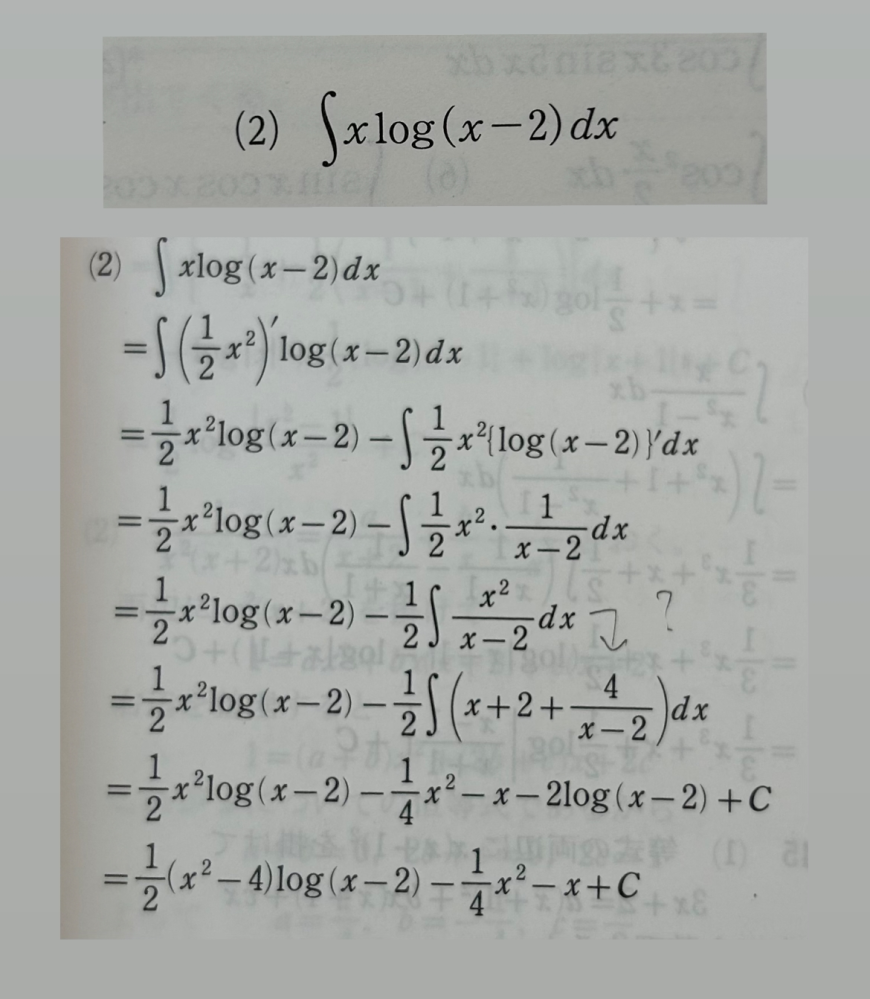 (2) ∫xlog(x−2)dx
(2) ∫xlog(x−2)dx
=∫(1/2 x²)′log(x−2)dx
=1/2 x²log(x−2)−∫1/2 x²{log(x−2)}′dx
=1/2 x²log(x−2)−∫1/2 x²·1/(x−2) dx
=1/2 x²log(x−2)−1/2∫x²/(x−2) dx ?
=1/2 x²log(x−2)−1/2∫(x+2+4/(x−2))dx
=1/2 x²log(x−2)−1/4 x²−x−2log(x−2)+C
=1/2(x²−4)log(x−2)−1/4 x²−x+C